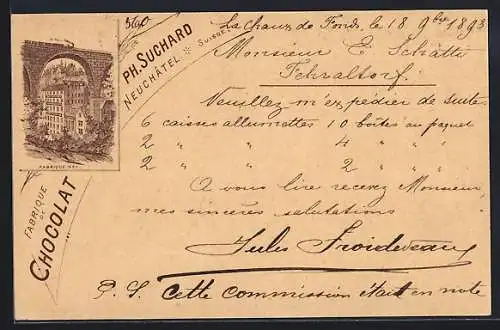 5640
La Chaux de Fonds, le 18 9bre 1893
PH. SUCHARD
NEUCHÂTEL * SUISSE
Monsieur E. Schätti
Fehraltorf.
Veuillez m'expédier de suite
6 caisses allumettes 10 boîtes au paquet
2 " " 4 " "
2 " " 2 " "
A vous lire recevez Monsieur,
mes sincères salutations
Jules Froidevaux
FABRIQUE DE
CHOCOLAT
P. S. Cette commission était en note